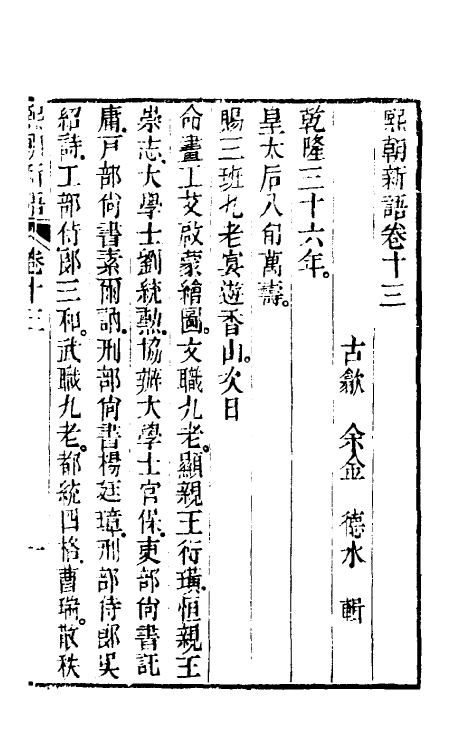 熙朝新語卷十三
古歙　余金　德水　輯
乾隆三十六年。
皇太后八旬萬壽。
賜三班九老宴遊香山。次日
命畫工艾啟蒙繪圖。文職九老。顯親王衍璜。恒親王
崇志。大學士劉統勲。協辦大學士官保。吏部尙書託
庸。戸部尙書素爾訥。刑部尙書楊廷璋。刑部侍郎吳
紹詩。工部侍郎三和。武職九老。都統四格。曹瑞。散秩
熙朝新語　卷十三　一